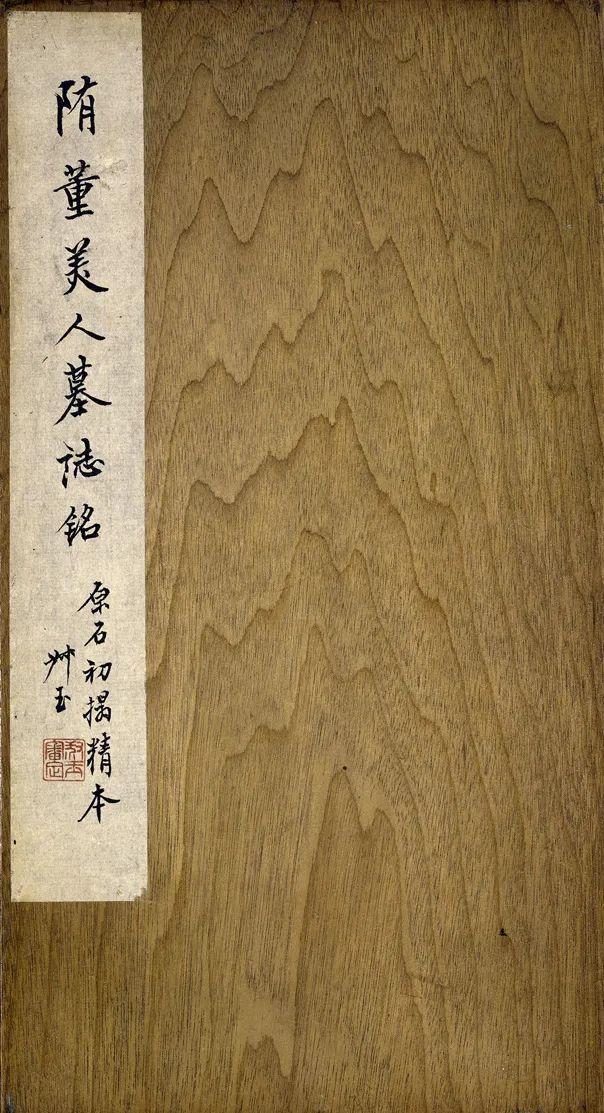 隋董美人墓誌銘
原石初搨精本
艸玉